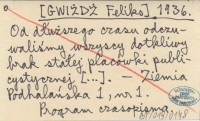 [GWIŻDŻ Feliks] 1936.
Od dłuższego czasu odczu-
waliśmy wszyscy dotkliwy
brak stałej placówki publi-
cystycznej [...]. — Ziemia
Podhalańska 1, nr 1.
Program czasopisma.